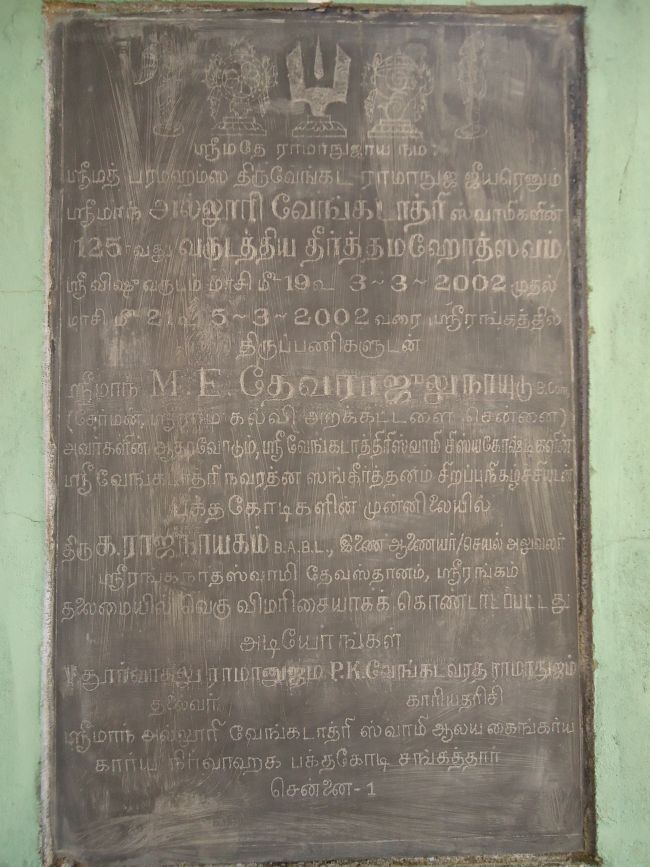 ஸ்ரீமதே ராமாநுஜாய நம:
ஸ்ரீமத் பரமஹம்ஸ திருவேங்கட ராமாநுஜ ஜீயரெனும்
ஸ்ரீமாந் அல்லூரி வேங்கடாத்ரி ஸ்வாமிகளின்
125-வது வருடத்திய தீர்த்தமஹோத்ஸவம்
ஸ்ரீவிஷு வருடம் மாசி மீ 19 வ 3-3-2002 முதல்
மாசி மீ 21 வ 5-3-2002 வரை ஸ்ரீரங்கத்தில்
திருப்பணிகளுடன்
ஸ்ரீமாந் M.E. தேவராஜுலுநாயுடு B.Com
(சேர்மன், ஸ்ரீராம கல்வி அறக்கட்டளை, சென்னை)
அவர்களின் ஆதரவோடும், ஸ்ரீ வேங்கடாத்திரிஸ்வாமி சிஸ்யகோஷ்டிகளின்
ஸ்ரீ வேங்கடாதரி நவரத்ன ஸங்கீர்த்தனம் சிறப்புநிகழ்ச்சியுடன்
பக்தகோடிகளின் முன்னிலையில்
திரு க. ராஜநாயகம் B.A.B.L., இணை ஆணையர்/செயல் அலுவலர்
ஸ்ரீரங்கநாதஸ்வாமி தேவஸ்தானம், ஸ்ரீரங்கம்
தலைமையில் வெகு விமரிசையாகக் கொண்டாடப்பட்டது
அடியோங்கள்
ராமானுஜம் P.K. வேங்கடவரத ராமாநுஜம்
தலைவர் காரியதரிசி
ஸ்ரீமாந் அல்லூரி வேங்கடாத்ரி ஸ்வாமி ஆலய கைங்கர்ய
கார்ய நிர்வாஹக பக்தகோடி சங்கத்தார்
சென்னை-1